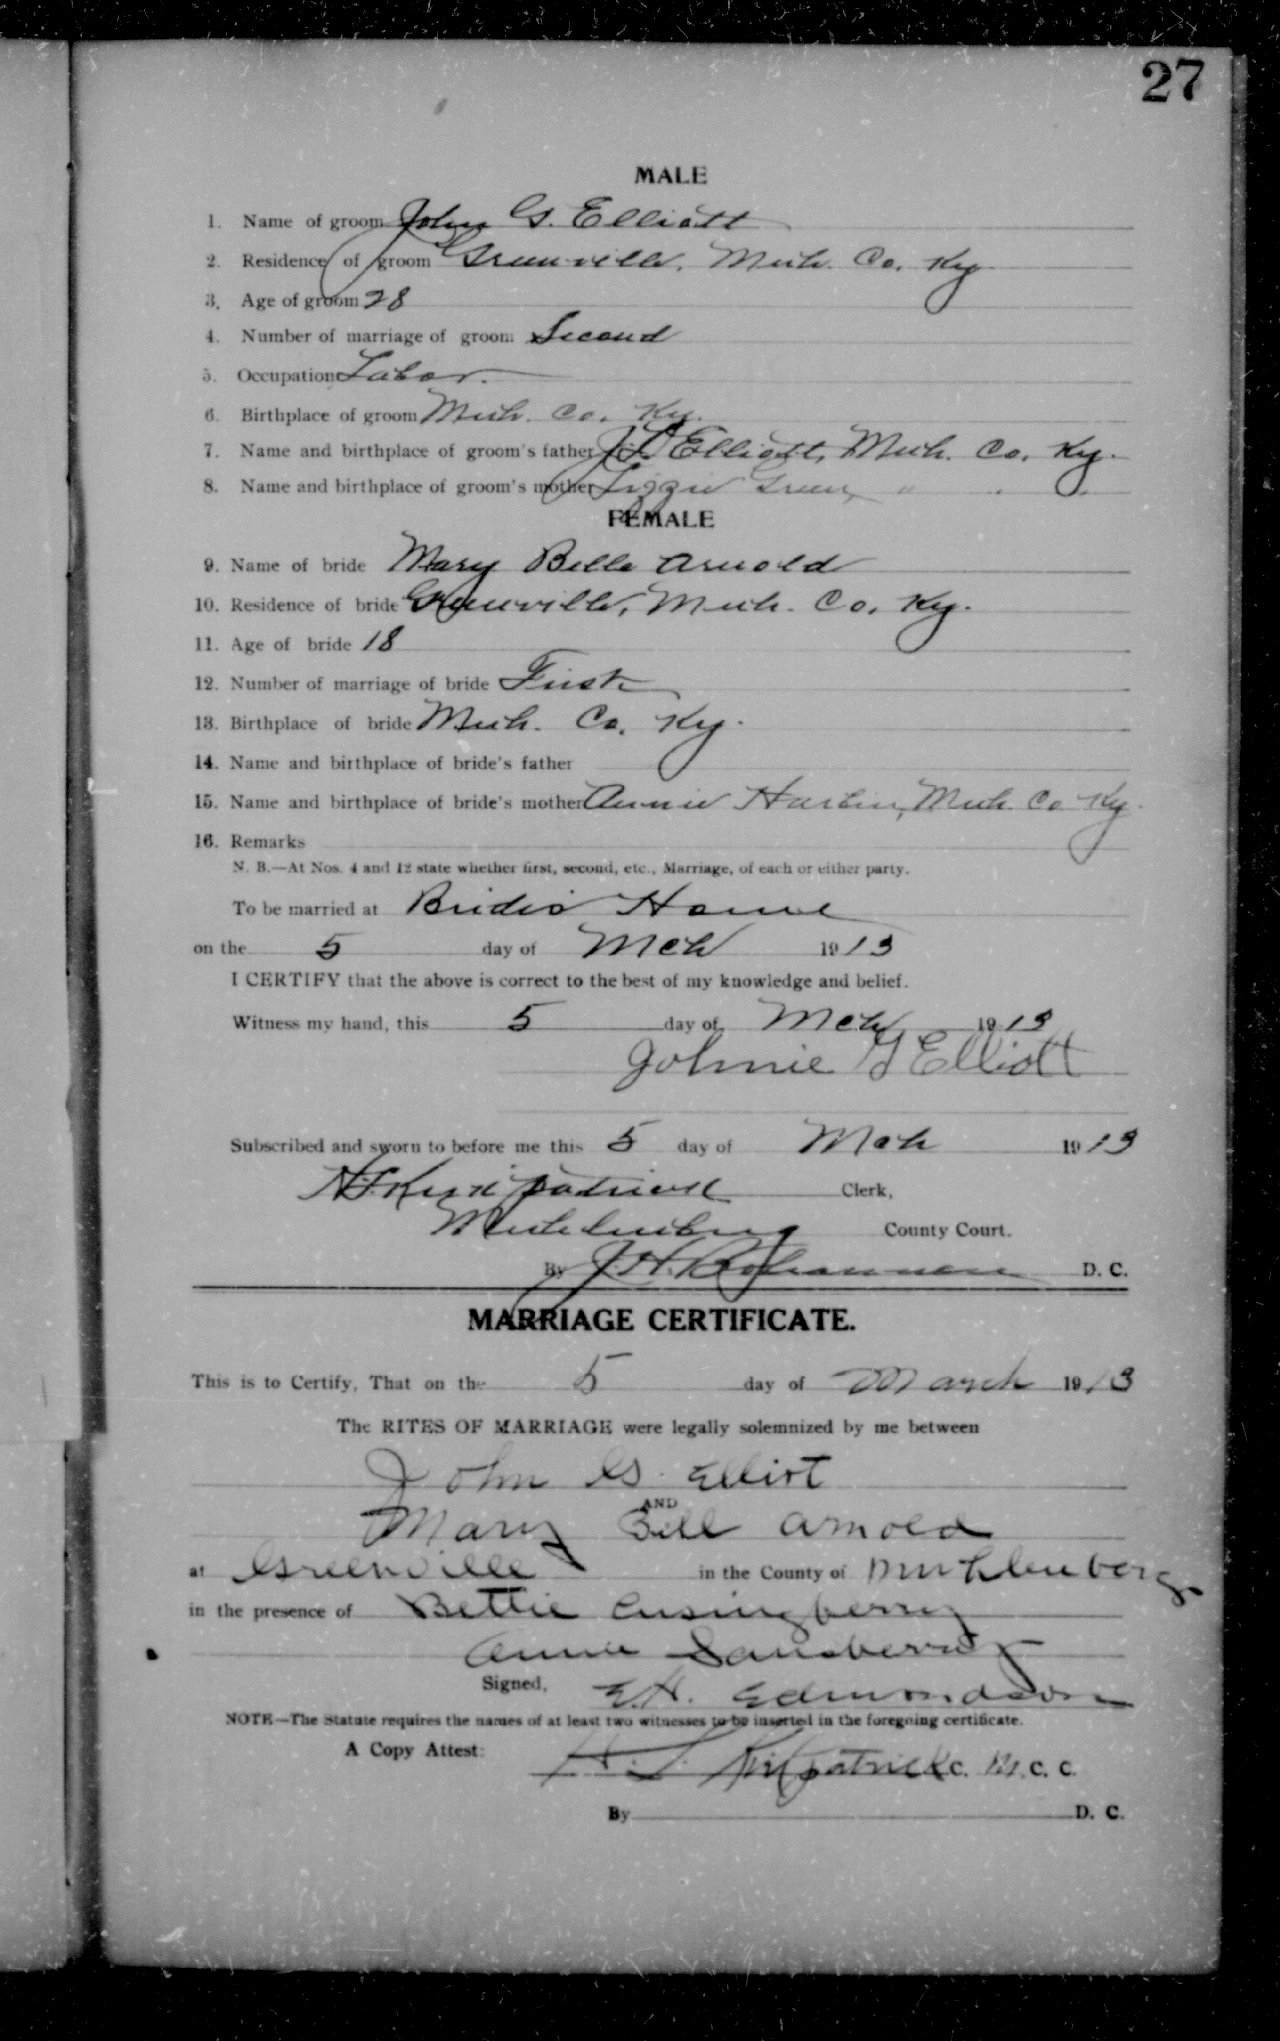 27
MALE
1. Name of groom John G. Elliott
2. Residence of groom Greenville, Muh. Co. Ky
3. Age of groom 28
4. Number of marriage of groom Second
5. Occupation Labor.
6. Birthplace of groom Muh. Co. Ky.
7. Name and birthplace of groom's father Elliott, Muh. Co. Ky.
8. Name and birthplace of groom's mother Lizzie Green, " . .
FEMALE
9. Name of bride Mary Belle Arnold
10. Residence of bride Greenville, Muh. Co. Ky.
11. Age of bride 18
12. Number of marriage of bride First
13. Birthplace of bride Muh. Co. Ky.
14. Name and birthplace of bride's father
15. Name and birthplace of bride's mother Annie Harbin, Muh. Co Ky.
16. Remarks
N. B.—At Nos. 4 and 12 state whether first, second, etc., Marriage, of each or either party.
To be married at Brides Home
on the 5 day of Mch 1913
I CERTIFY that the above is correct to the best of my knowledge and belief.
Witness my hand, this 5 day of Mch 1913
Johnie G Elliott
Subscribed and sworn to before me this 5 day of Mch 1913
Kirkpatrick Clerk,
Muhlenberg County Court.
By J. H. Bohannon D. C.
MARRIAGE CERTIFICATE.
This is to Certify, That on the 5 day of March 1913
The RITES OF MARRIAGE were legally solemnized by me between
John G. Elliot
AND
Mary Bell Arnold
at Greenville in the County of Muhlenberg
in the presence of Bettie
Annie Sansberry
Signed, E. H. Edmondson
NOTE—The Statute requires the names of at least two witnesses to be inserted in the foregoing certificate.
A Copy Attest: Kirkpatrick C. M. C. C.
By D. C.